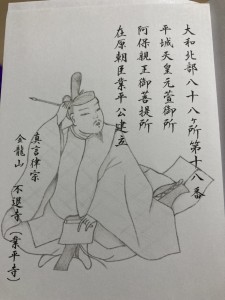 大和北部八十八ヶ所第十八番
平城天皇元萱御所
阿保親王御菩提所
在原朝臣業平公建立
真言律宗
金龍山 不退寺（業平寺）